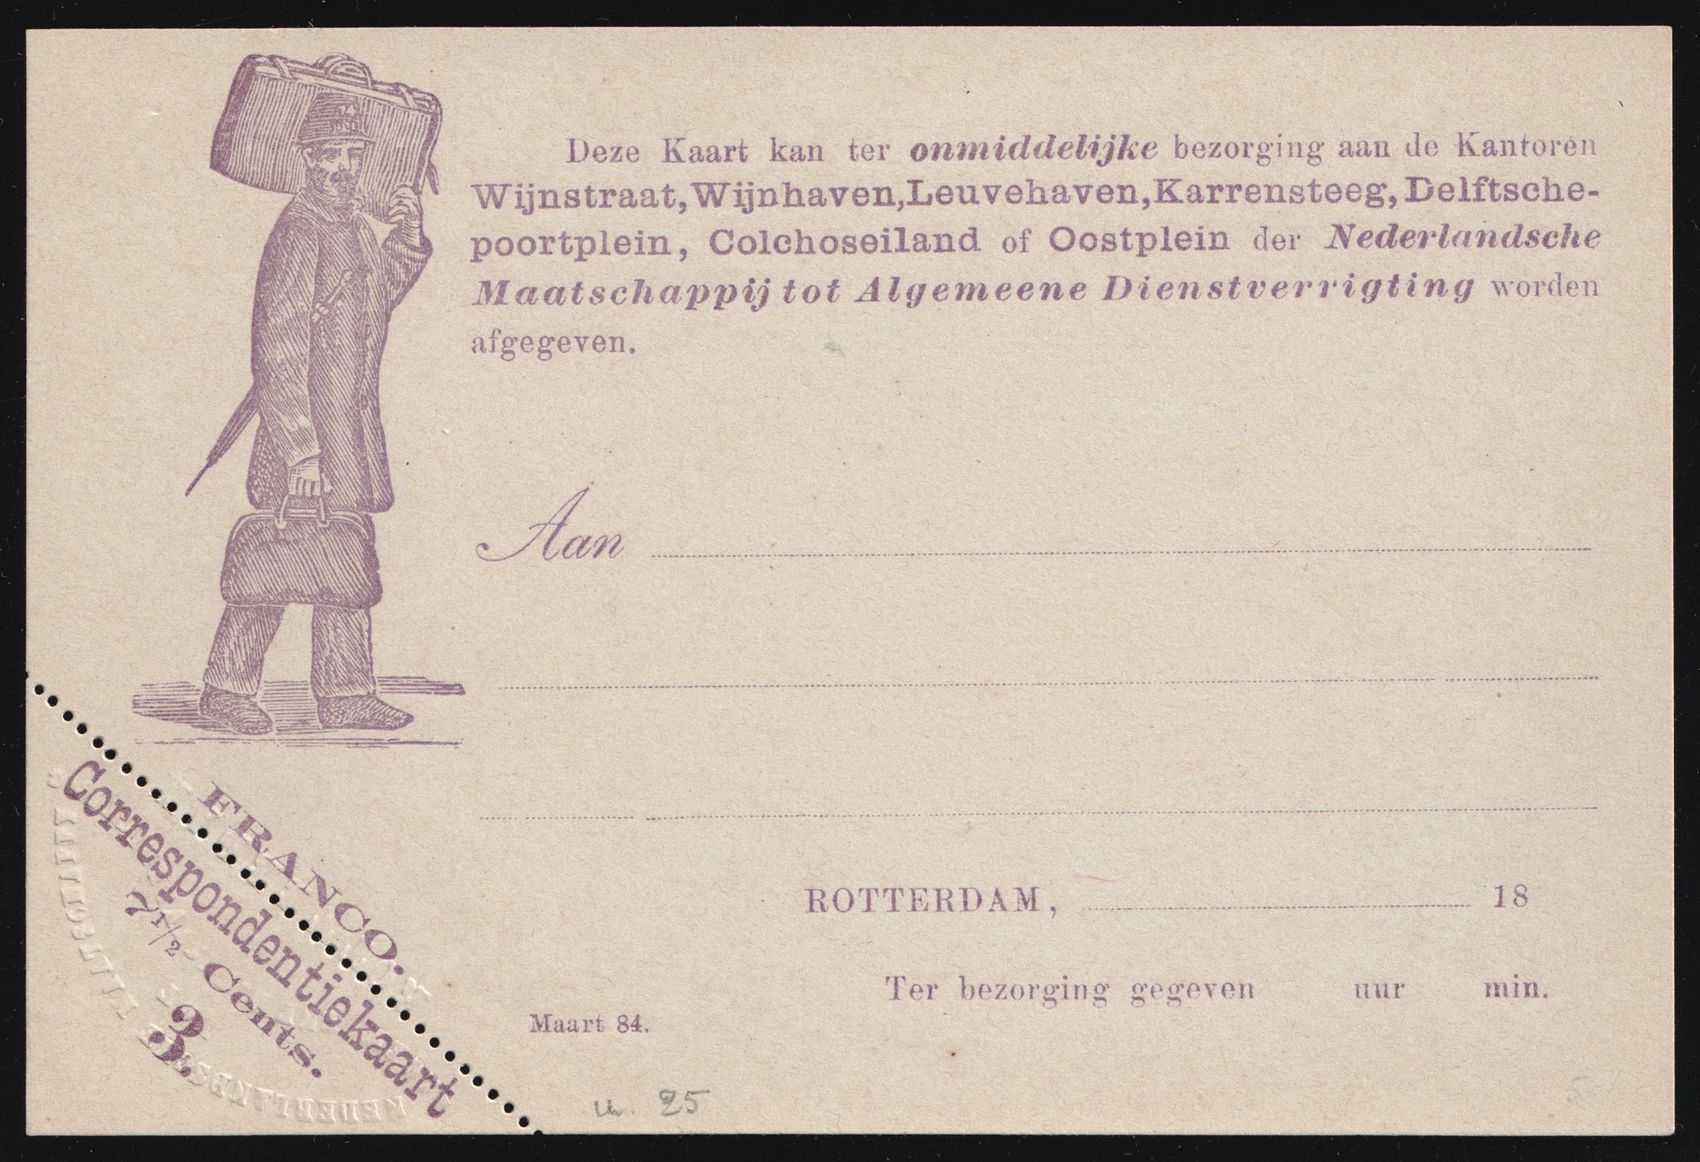 Deze Kaart kan ter onmiddelijke bezorging aan de Kantoren
Wijnstraat, Wijnhaven, Leuvehaven, Karrensteeg, Delftsche-
poortplein, Colchoseiland of Oostplein der Nederlandsche
Maatschappij tot Algemeene Dienstverrigting worden
afgegeven.
Aan
ROTTERDAM, 18
Ter bezorging gegeven uur min.
Maart 84.
FRANCO.
Correspondentiekaart
7 1/2 Cents.
3
25
14